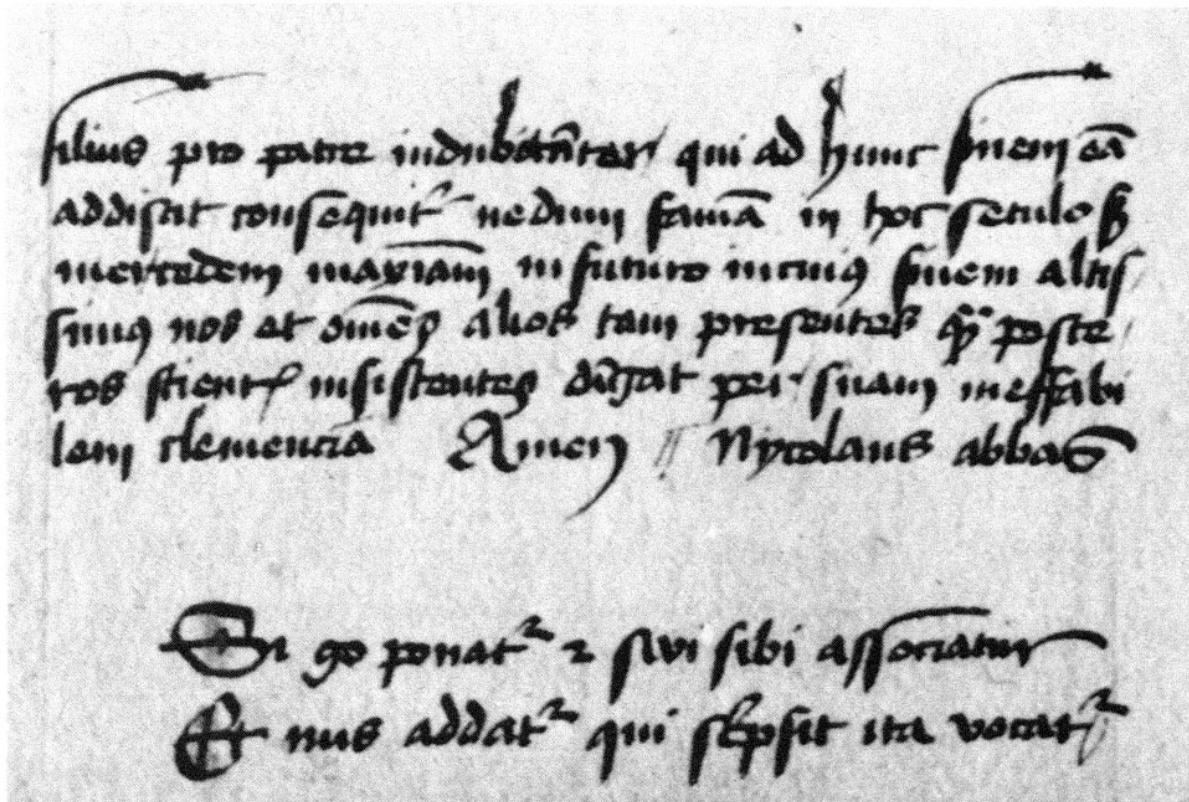 filius pro patre indubitāter qui ad hunc finem eā
addiscit consequit᷑ nedum famā in hoc seculo sꝫ
mercedem maxīam in futuro in cuiꝰ finem altis
simꝰ nos et om̄es alios tam presentes qꝫ poste
ros scient᷑ insistentes dirigat per suam ineffabi
lem clemenciā Amen Nycolaus abbas
Si go ponat᷑ ⁊ sivi sibi associatur
Et nus addat᷑ qui sc̄psit ita vocat᷑